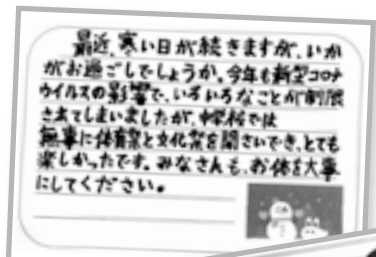 最近、寒い日が続きますが、いか
がお過ごしでしょうか。今年も新型コロナ
ウイルスの影響で、いろいろなことが制限
されてしまいましたが、中学校では
無事に体育祭と文化祭を開さいでき、とても
楽しかったです。みなさんも、お体を大事
にしてください。